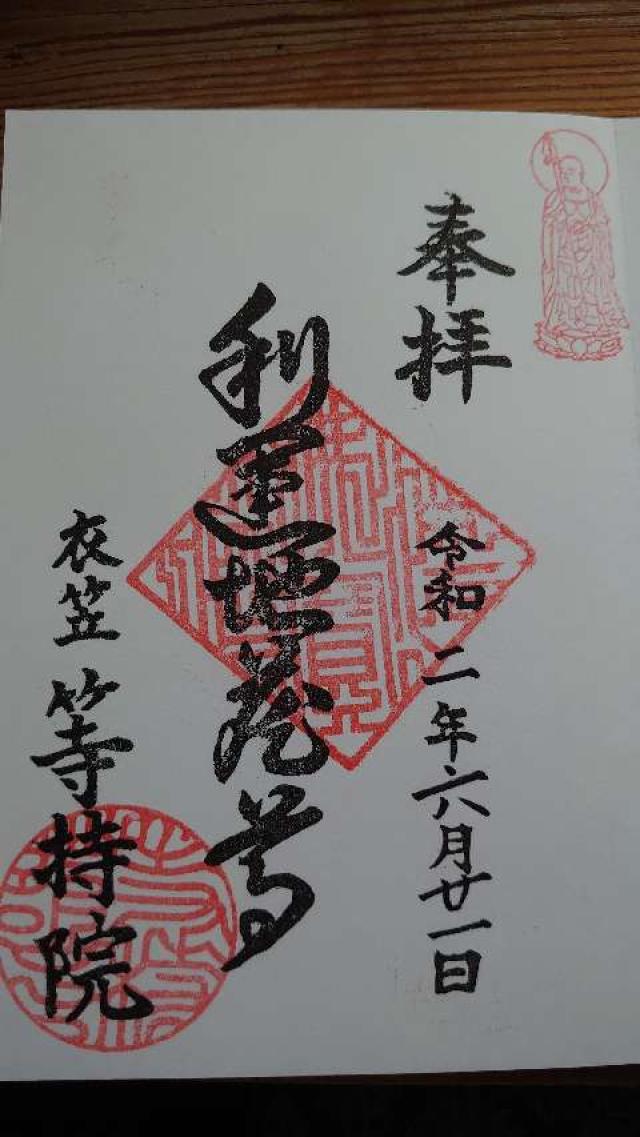 奉拝
令和二年六月廿一日
利運地蔵尊
衣笠等持院